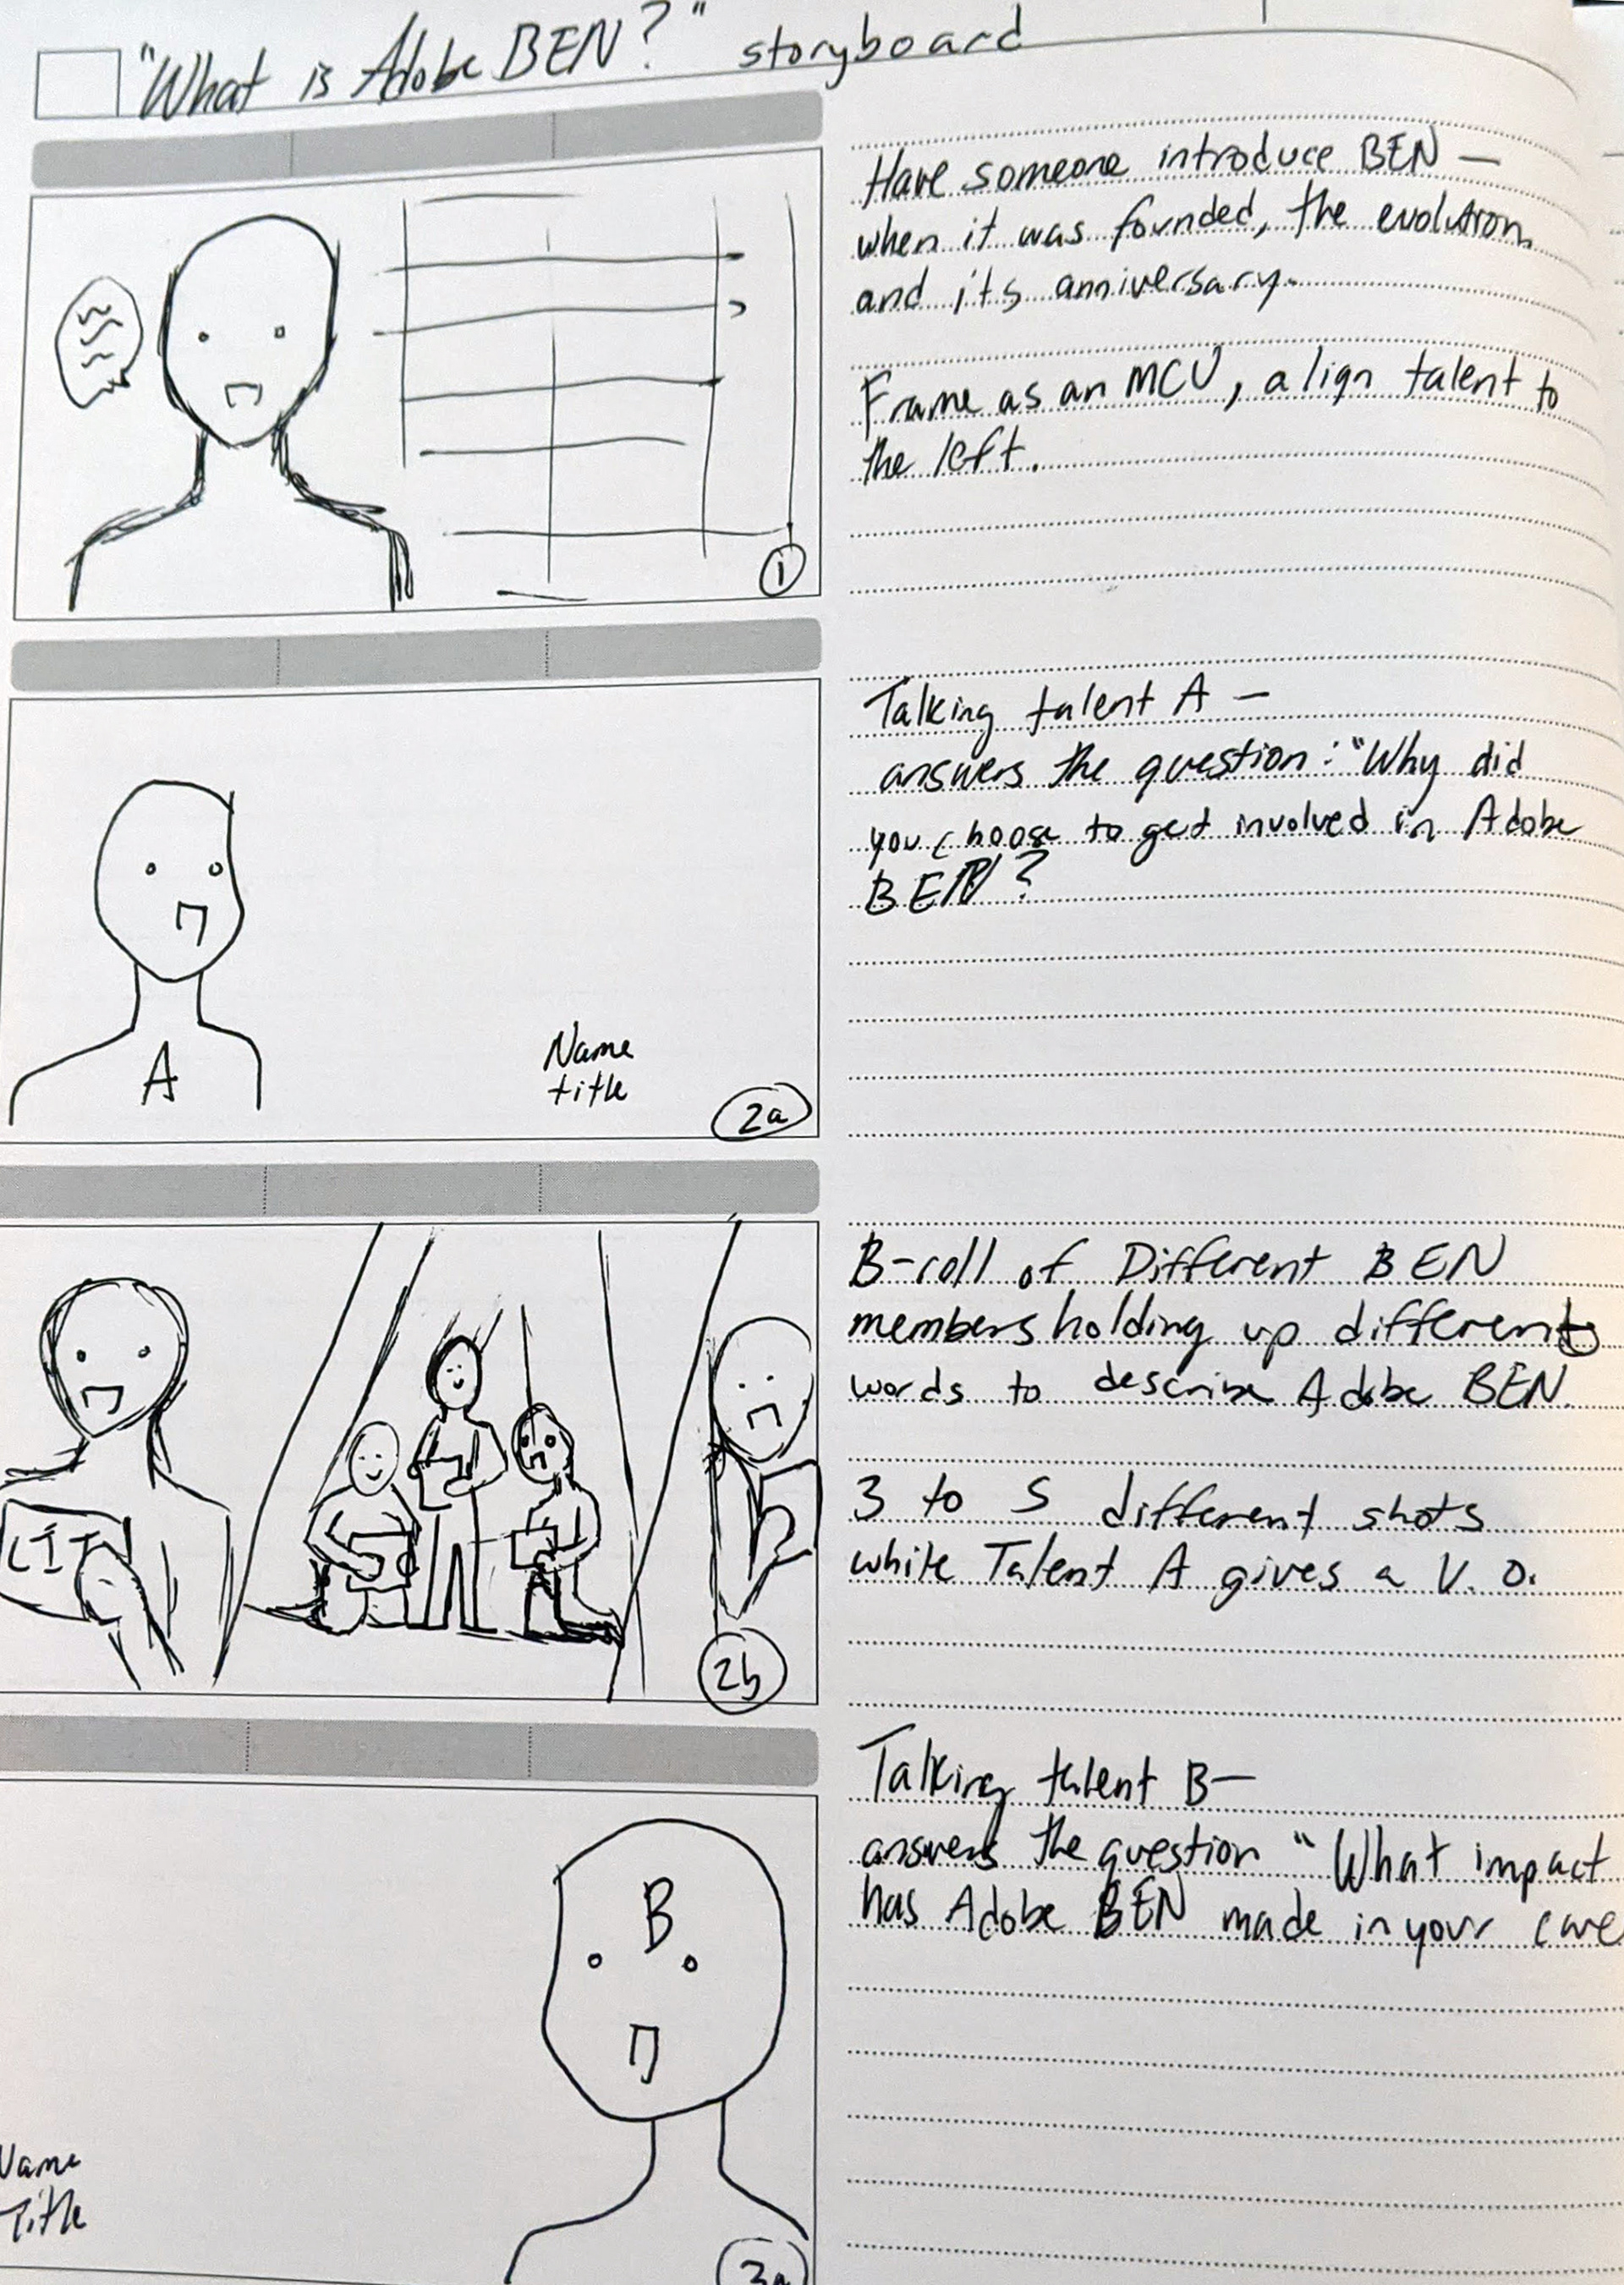 "What is Adobe BEN?" storyboard
Have someone introduce BEN —
when it was founded, the evolution,
and it's anniversary.
Frame as an MCU, align talent to
the left.
1
Talking talent A —
answers the question: "Why did
you choose to get involved in Adobe
BEN?
A
Name
title
2a
B-roll of Different BEN
members holding up different
words to describe Adobe BEN.
3 to 5 different shots
while Talent A gives a V.O.
LIT
2b
Talking talent B—
answers the question "What impact
has Adobe BEN made in your
B
Name
Title
3a